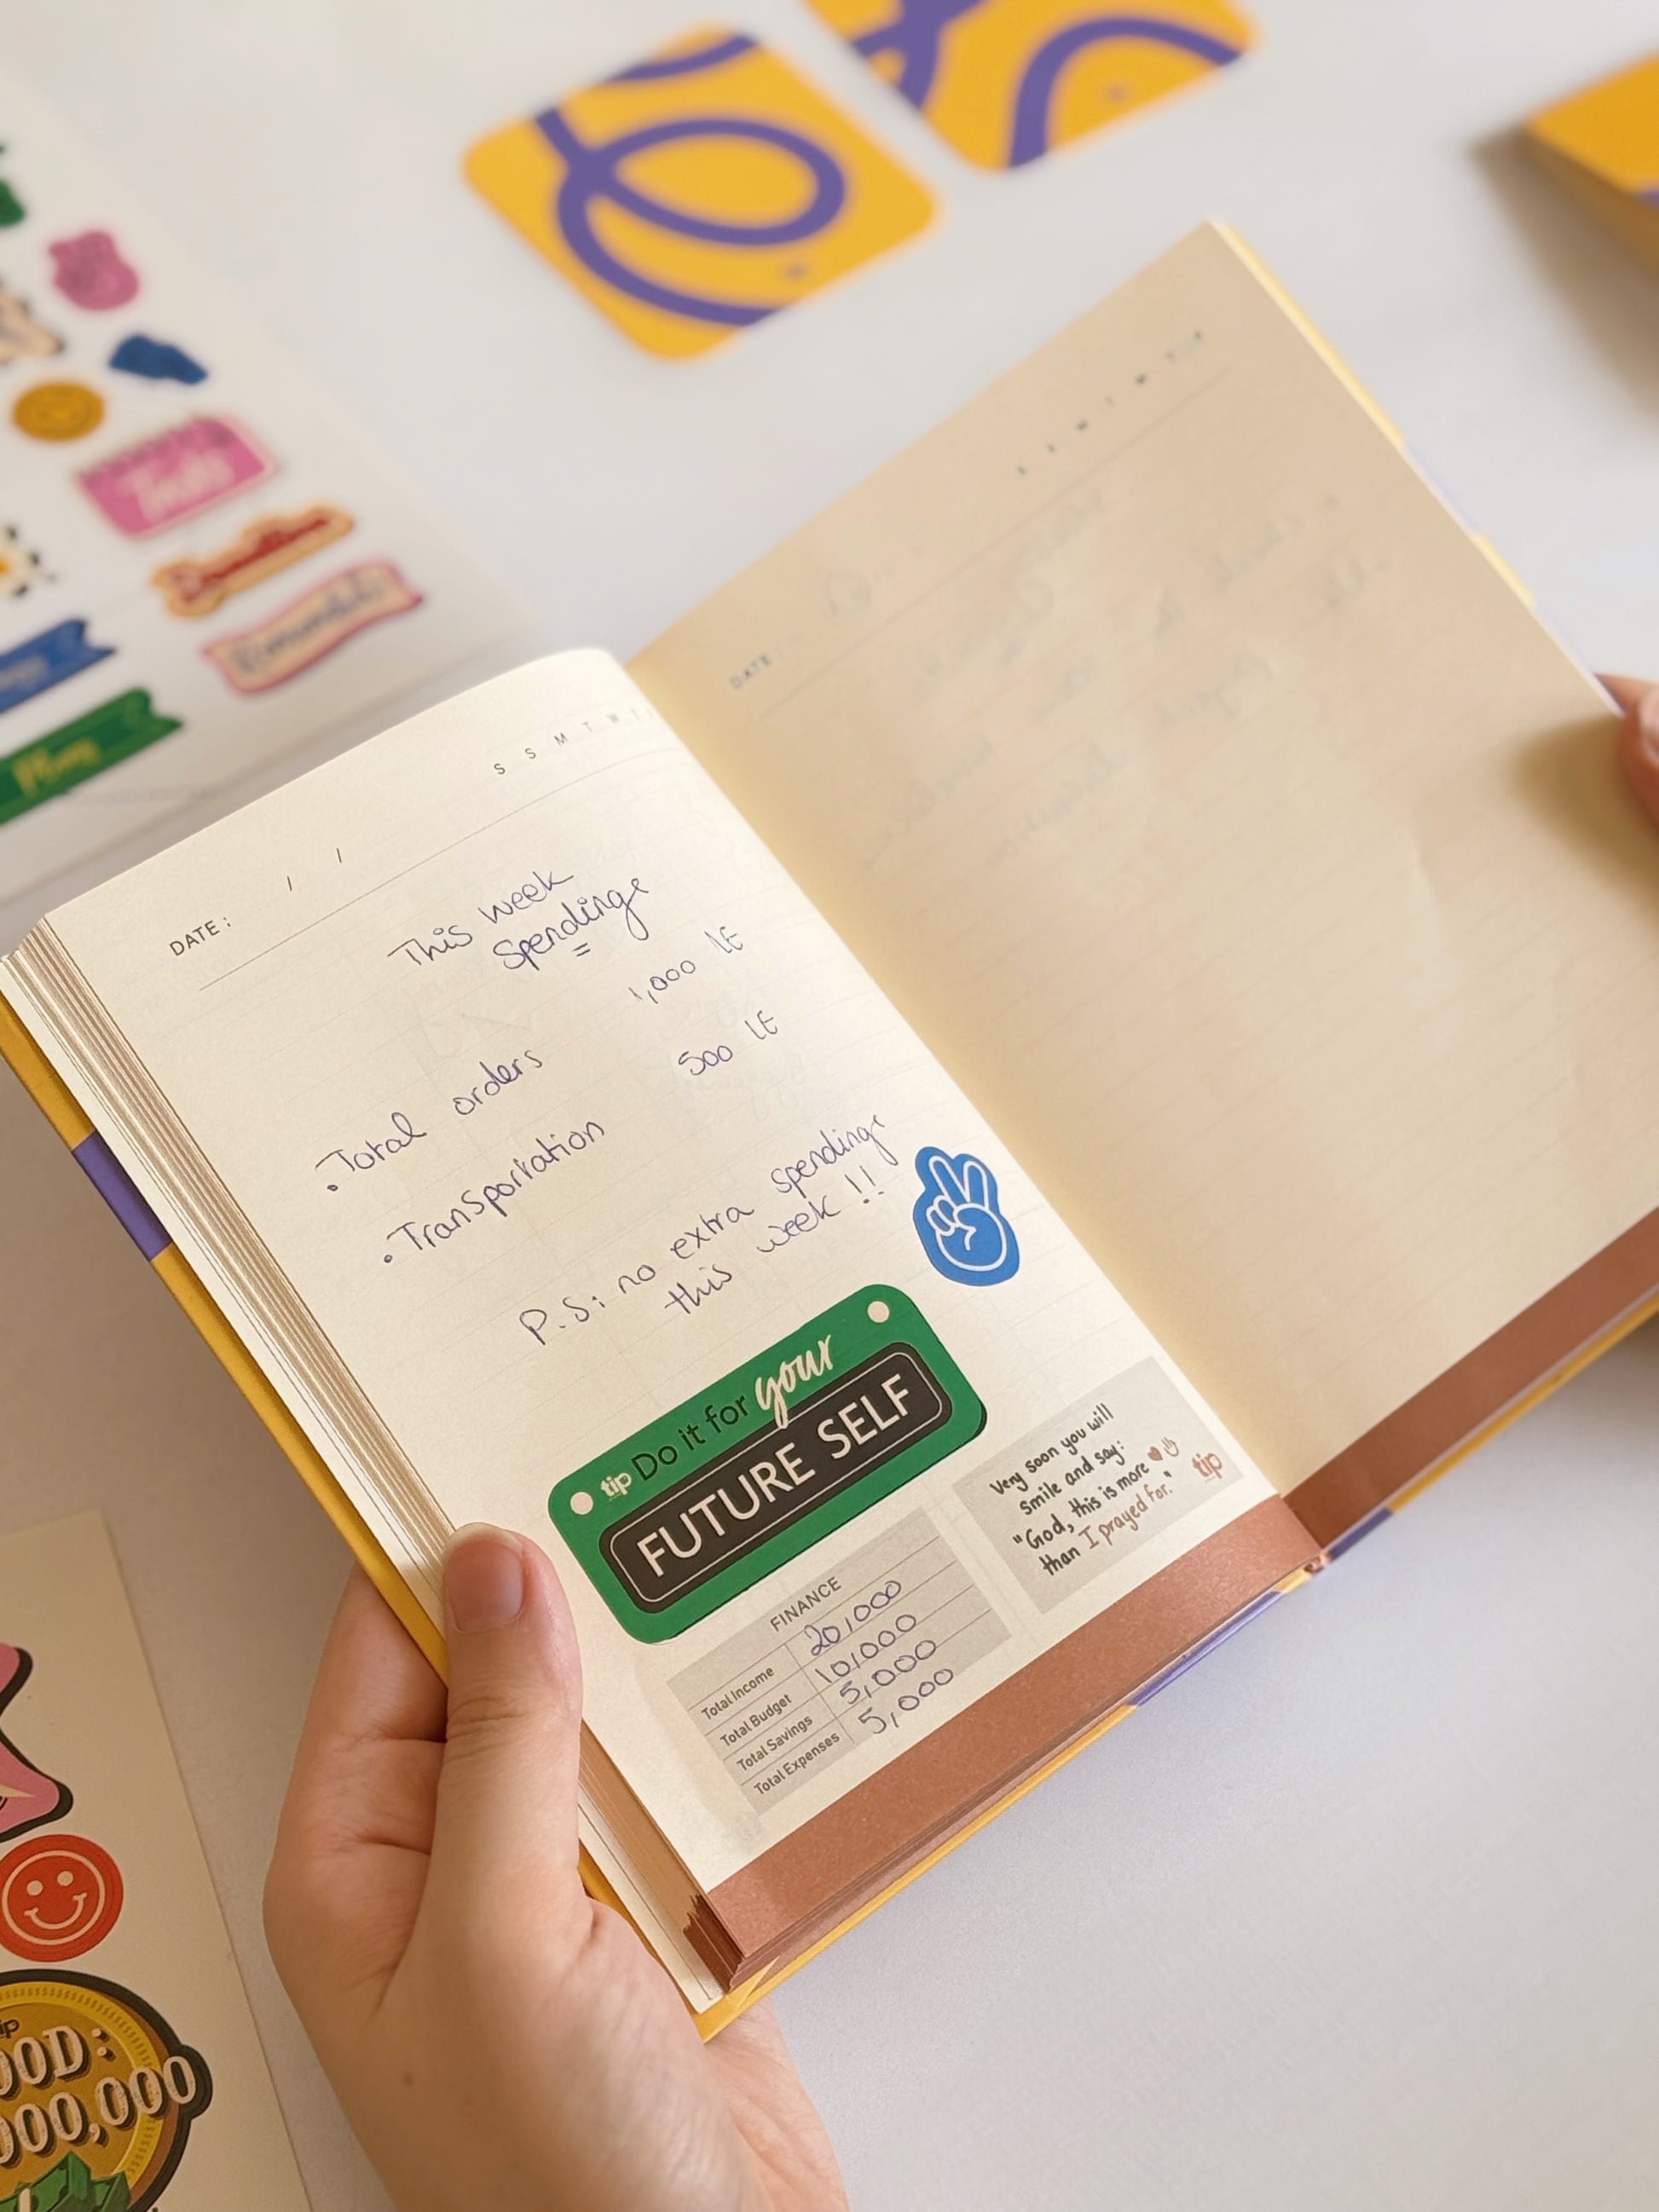 Tasks
Plans
DATE: / /
S S M T W T
This week
spendings
=
• Total orders 1,000 LE
• Transportation 500 LE
P.S: no extra spendings
this week !!
tip Do it for your
FUTURE SELF
Very soon you will
smile and say:
"God, this is more
than I prayed for."
tip
FINANCE
Total Income 20,000
Total Budget 10,000
Total Savings 5,000
Total Expenses 5,000
DATE:
S S M T W T F
OOD:
000,000